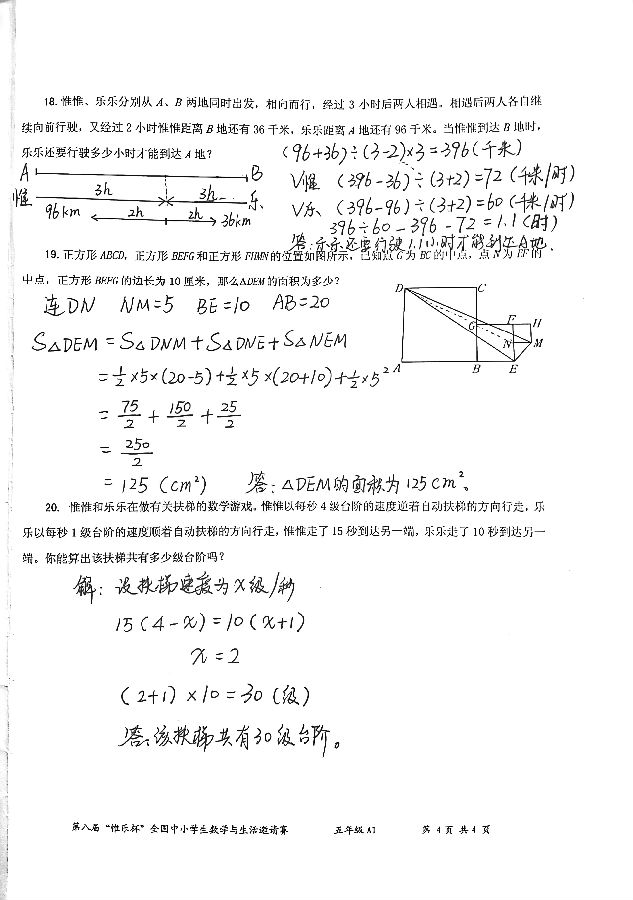 18. 惟惟、乐乐分别从 A、B 两地同时出发，相向而行，经过 3 小时后两人相遇。相遇后两人各自继
续向前行驶，又经过 2 小时惟惟距离 B 地还有 36 千米，乐乐距离 A 地还有 96 千米。当惟惟到达 B 地时，
乐乐还要行驶多少小时才能到达 A 地？
(96+36)÷(3-2)×3=396(千米)
A B
惟 3h 3h 乐
96km 2h 2h 36km
V惟 (396-36)÷(3+2)=72(千米/时)
V乐 (396-96)÷(3+2)=60(千米/时)
396÷60-396÷72=1.1(时)
答:乐乐还要行驶1.1小时才能到达A地.
19. 正方形 ABCD，正方形 BEFG 和正方形 FHMN 的位置如图所示，已知点 G 为 BC 的中点，点 N 为 EF 的
中点，正方形 BEFG 的边长为 10 厘米，那么△DEM 的面积为多少？
连DN NM=5 BE=10 AB=20
S△DEM=S△DNM+S△DNE+S△NEM
=1/2×5×(20-5)+1/2×5×(20+10)+1/2×5²
=75/2+150/2+25/2
=250/2
=125(cm²) 答:△DEM的面积为125cm²。
D C
G F H
N M
A B E
20. 惟惟和乐乐在做有关扶梯的数学游戏，惟惟以每秒 4 级台阶的速度逆着自动扶梯的方向行走，乐
乐以每秒 1 级台阶的速度顺着自动扶梯的方向行走，惟惟走了 15 秒到达另一端，乐乐走了 10 秒到达另一
端。你能算出该扶梯共有多少级台阶吗？
解:设扶梯速度为x级/秒
15(4-x)=10(x+1)
x=2
(2+1)×10=30(级)
答:该扶梯共有30级台阶。
第八届“惟乐杯”全国中小学生数学与生活邀请赛 五年级 A1 第 4 页 共 4 页